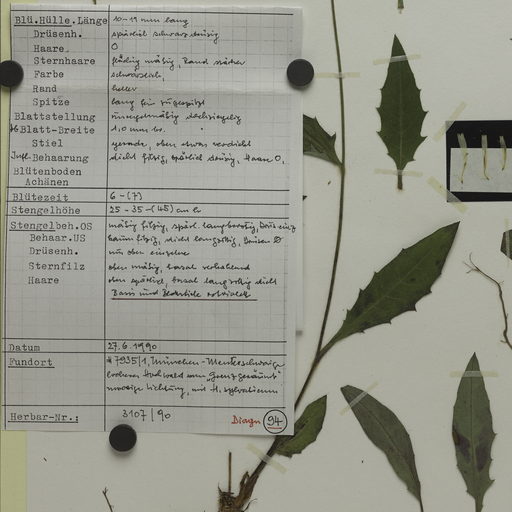 Blü.Hülle.Länge 10-11 mm lang
Drüsenh. spärlich schwarzdrüsig
Haare 0
Sternhaare flockig mäßig, Rand stärker
Farbe schwarzlich,
Rand heller
Spitze lang fein zugespitzt
Blattstellung unregelmäßig dachziegelig
Blatt-Breite 1,0 mm br.
Stiel gerade, oben etwas verdickt
Behaarung dicht filzig, spärlich drüsig, Haare 0,
Blütenboden
Achänen
Blütezeit 6 - (7)
Stengelhöhe 25 - 35 - (45) cm h
Stengelbeh.OS mäßig filzig, spärl. langborstig,
Behaar.US
Drüsenh. nur oben einzelne
Sternfilz oben mäßig, basal
Haare oben spärlich, basal langzottig dicht
Basis und Blattstiele rotviolett
Datum 27.6.1990
Fundort 7935/1, München - Menterschwaige
lockerer Hochwald am "Grenzgeräumt"
moosige Lichtung, mit H. sylvaticum
Herbar-Nr.: 3107/90
Diagn 94